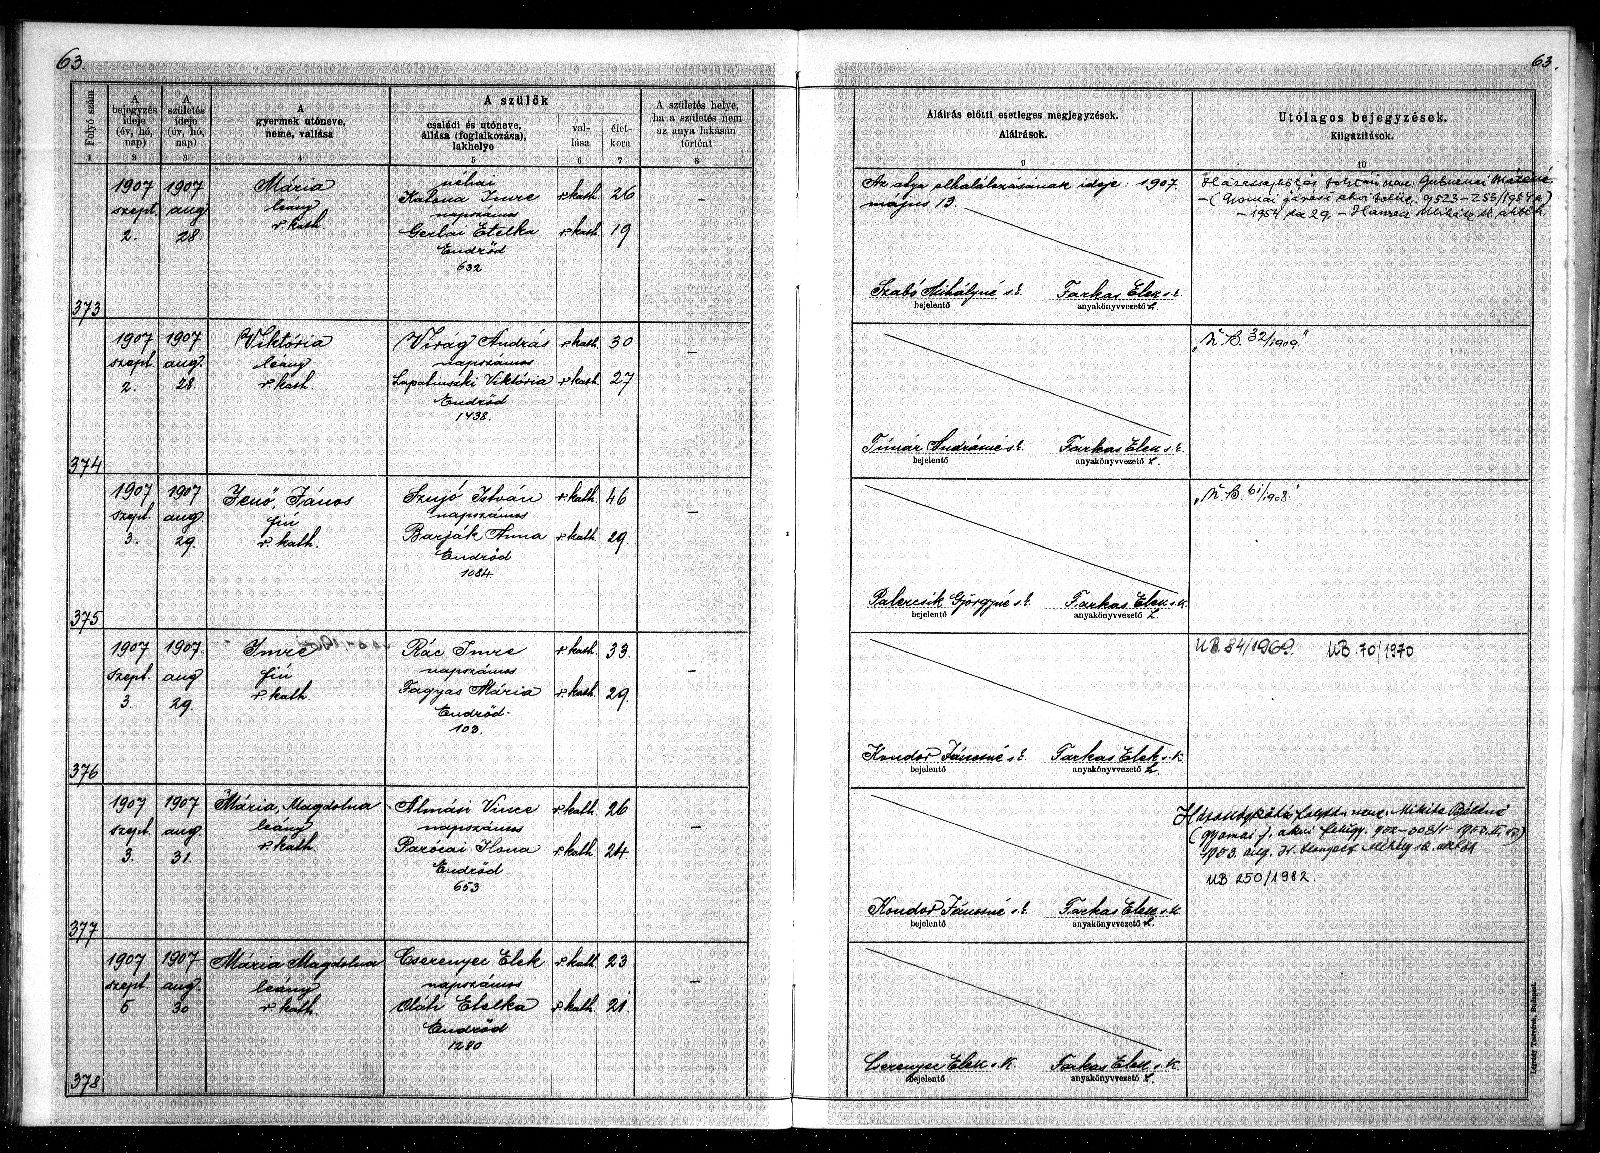 63.
63.
Folyó szám
A bejegyzés ideje (év, hó, nap)
A születés ideje (év, hó, nap)
A gyermek utóneve, neme, vallása
A szülők
családi és utóneve, állása (foglalkozása), lakhelye
val-lása
élet-kora
A születés helye, ha a születés nem az anya lakásán történt
Aláírás előtti esetleges megjegyzések.
Aláírások.
Utólagos bejegyzések.
Kiigazítások.
1 2 3 4 5 6 7 8 9 10
373
1907 szept. 2.
1907 aug. 28
Mária
leány
r. kath.
néhai
Katona Imre r. kath. 26
napszámos
Gellai Etelka r. kath. 19
Endrőd
632
–
Az atya elhalálozásának ideje: 1907.
május 13.
Szabó Mihályné s. k. Farkas Elek s. k.
bejelentő anyakönyvvezető h.
374
1907 szept. 2.
1907 aug. 28.
Viktória
leány
r. kath.
Virág András r. kath. 30
napszámos
Lapatinszki Viktória r. kath. 27
Endrőd
1438.
–
Tímár Andrásné s. k. Farkas Elek s. k.
bejelentő anyakönyvvezető h.
„N. B. 32/1909"
375
1907 szept. 3.
1907 aug. 29.
Jenő, János
fiú
r. kath.
Szujó István r. kath. 46
napszámos
Barják Anna r. kath. 29
Endrőd
1084
–
Palercsik Györgyné s. k. Farkas Elek s. k.
bejelentő anyakönyvvezető h.
„N. B. 61/1908."
376
1907 szept. 3.
1907. aug 29.
Imre
fiú
r. kath.
Rác Imre r. kath. 33.
napszámos
Fagyas Mária r. kath. 29.
Endrőd.
103.
–
Kondor Jánosné s. k. Farkas Elek s. k.
bejelentő anyakönyvvezető h.
UB 84/1969. UB 70/1970
377
1907 szept. 3.
1907 aug. 31.
Mária, Magdolna
leány
r. kath
Almási Vince r. kath. 26
napszámos
Parócai Ilona r. kath. 24
Endrőd.
653
–
Kondor Jánosné s. k. Farkas Elek s. k.
bejelentő anyakönyvvezető h.
UB 250/1982.
378
1907 szept. 5
1907 aug. 30
Mária Magdolna
leány
r. kath.
Cserenyec Elek r. kath. 23
napszámos
Oláh Etelka r. kath. 21
Endrőd
1280
–
Cserenyec Elek s. k. Farkas Elek s. k.
bejelentő anyakönyvvezető h.